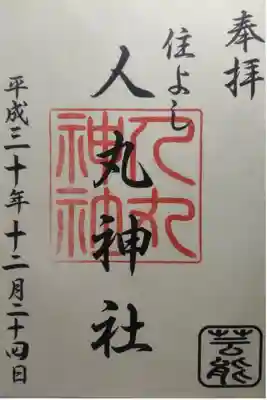 奉拝
住よし
人丸神社
人丸
神社
平成三十年十二月二十四日
芸能